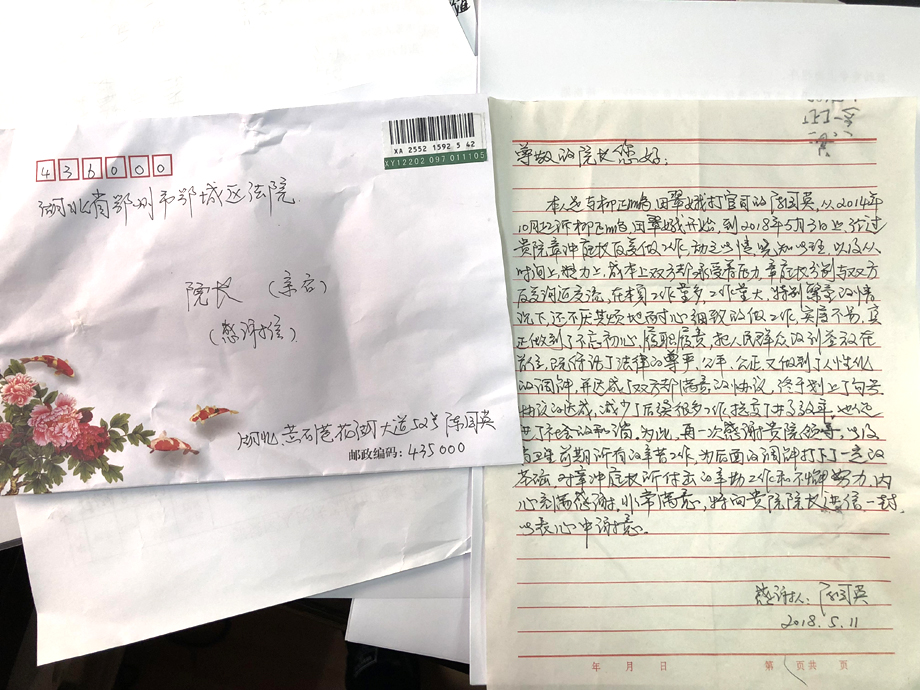 XA 2552 1592 5 42
XY12202 097 011105
436000
湖北省鄂州市鄂城区法院
院长（亲启）
（感谢信）
湖北黄石港花湖大道52号陈国英
邮政编码：435000
尊敬的院长您好：
本人是与柳正鸣、田翠娥打官司的陈国英，从2014年
10月22诉柳正鸣、田翠娥开始，到2018年5月3日上午过
贵院章冲庭长反复做工作，动之以情，晓知以理，以及从
时间上、精力上、成本上双方都承受着压力，章庭长分别与双方
反复沟通交流，在本身工作量多，工作量大，特别繁重的情
况下，还不厌其烦地耐心细致的做工作，实属不易，真
正做到了不忘初心，履职尽责，把人民群众的利益放在
首位，既传话了法律的尊严，公平、公正又做到了人性化
的调解，并达成了双方都满意的协议，终于划上了句号。
协议的达成，减少了后续很多工作，提高了办事效率，也促
进了社会的和谐。为此，再一次感谢贵院领导，以及
前期所有的辛苦工作，为后面的调解打下了一定的
基础，对章冲庭长所付出的辛勤工作和不懈努力，内
心充满感谢，非常满意，特向贵院院长进信一封，
以表心中谢意。
感谢人：陈国英
2018.5.11
年 月 日
第 页共 页